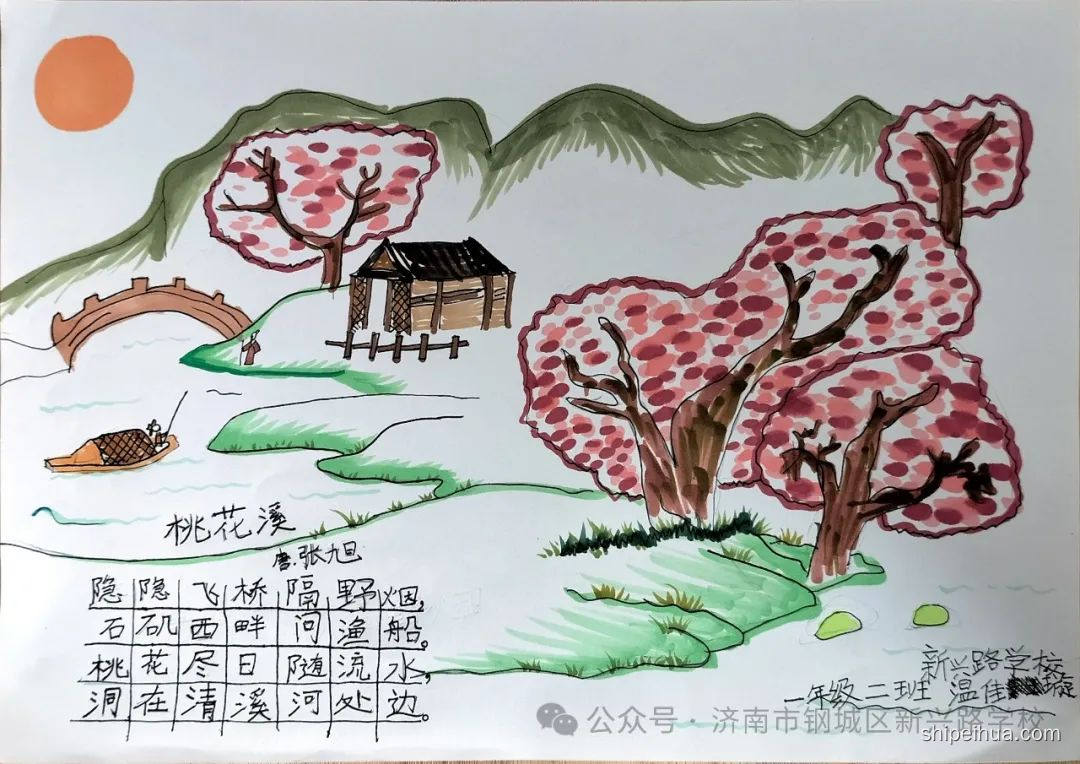 桃花溪
唐.张九旦
隐隐飞桥隔野烟,
石矶西畔问渔船。
桃花尽日随流水,
洞在清溪河处边。
新兴路学校
一年级二班 温佳璇
公众号·济南市钢城区新兴路学校
shipeihua.com